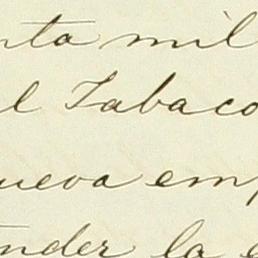 nta mil
l Tabaco
ueva emp
nder la e